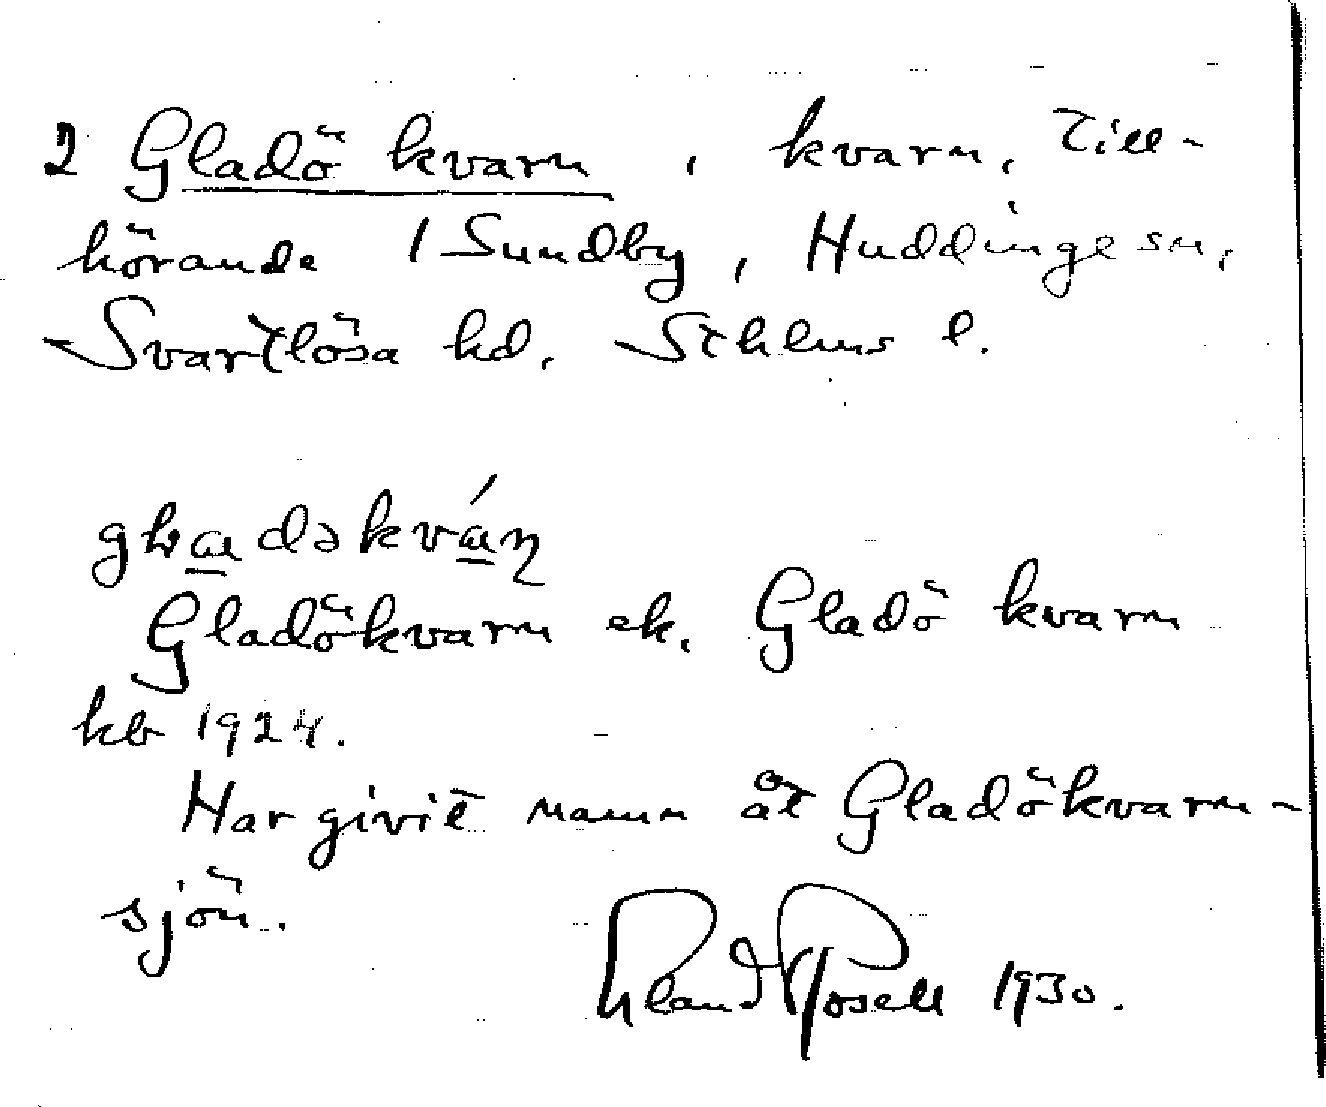 2 Gladö kvarn, kvarn, till-
hörande 1 Sundby, Huddinge sn,
Svartlösa hd, Sthlms l.
Gladökvarn ek. Gladö kvarn
kb 1924.
Har givit namn åt Gladökvarn-
sjön.
Rosell 1930.